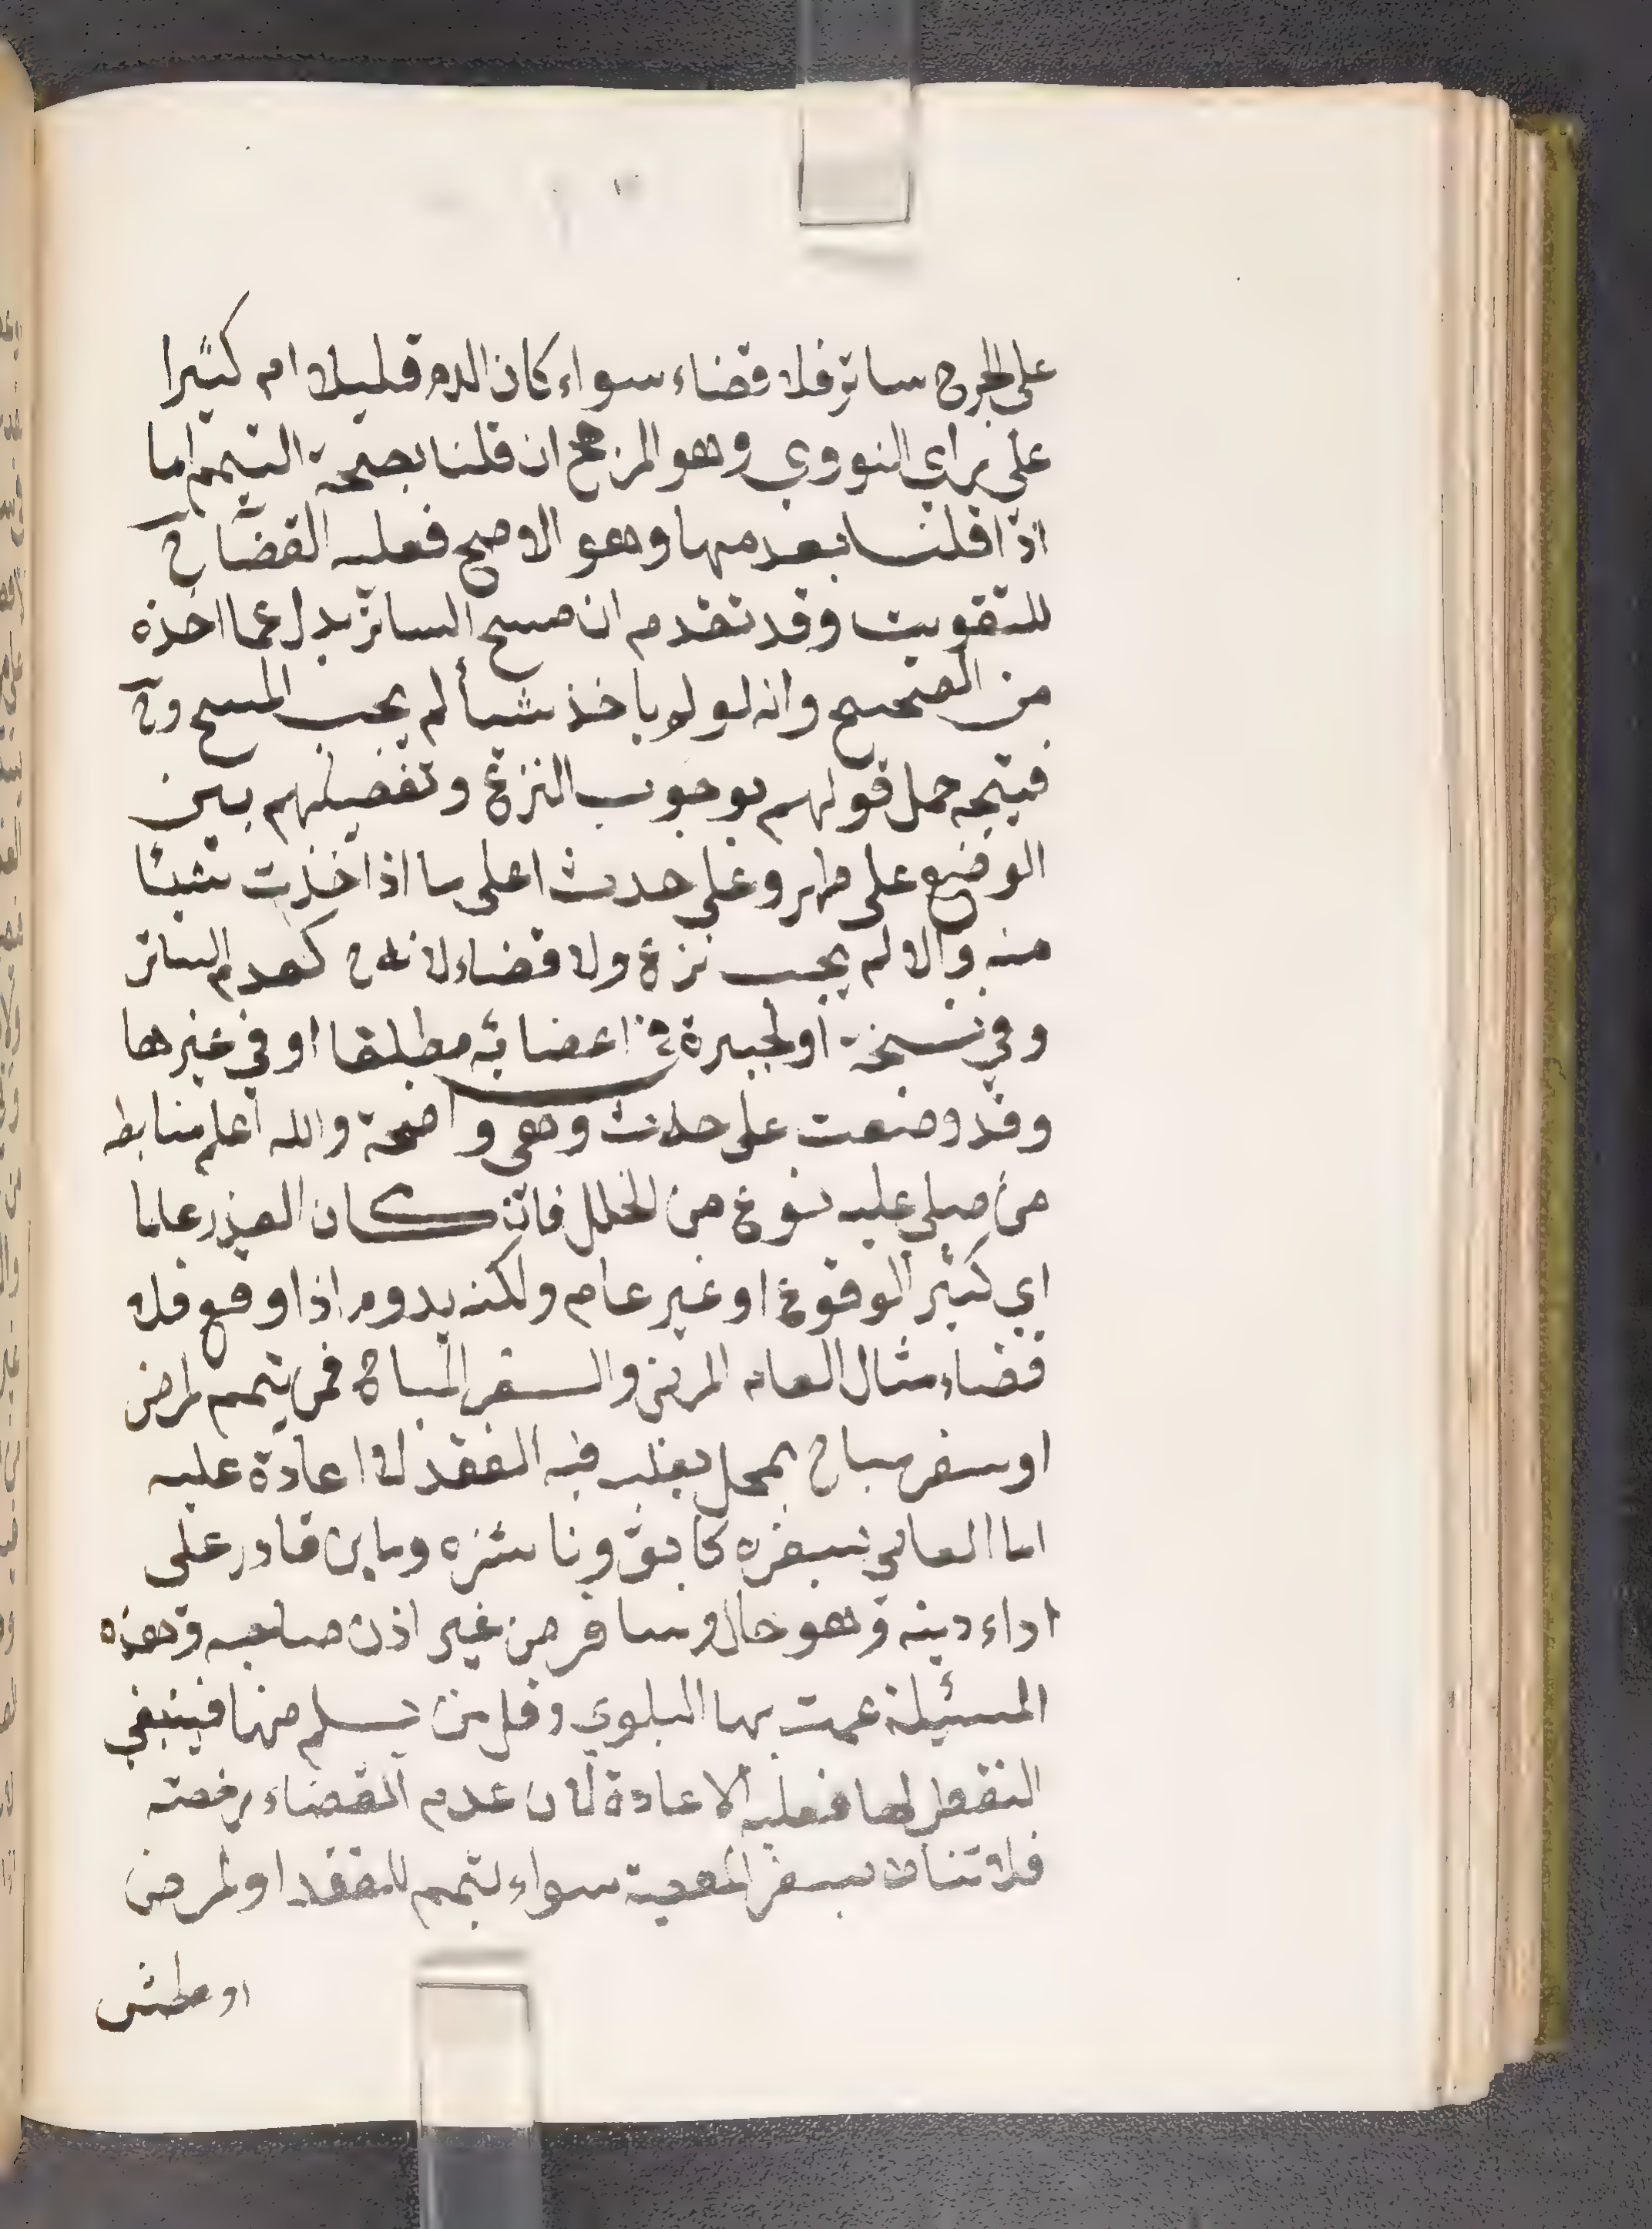 على الجرح ساتر فلا قضاء سواء كان الدم قليلا ام كثيرا
على راي النووي وهو المرجح ان قلنا بصحة التيمم اما
اذا قلنا بعدمها وهو الاوصح فعليه القضاء ح
للتقويت وقد تقدم ان مسح الساتر بدل عما اخذه
من الصحيح وانه لو لم ياخذ شيأ لم يجب المسح وح
فيتجه حمل قولهم بوجوب النزع وتفصيلهم بين
الوضع على طهر وعلى حدث اعلى ما اذا اخذت شيئا
منه والا لم يجب نزعه ولا قضاء لانه ح كعدم الساتر
وفي نسخة او لجبيرة في اعضائه مطلقا او في غيرها
وقد وضعت على حدث وهي واضحة والله اعلم ضابط
من صلى عليه نوع من الخلل فان كان العذر عاما
اي كثير الوقوع او غير عام ولكنه يدوم اذا وقع فلا
قضاء مثال العام المرض والسفر المباح فمن تيمم لمرض
او سفر مباح بمحل يغلب فيه الفقد لا اعادة عليه
اما العاصي بسفره كابق وناشزه ومدين قادر على
اداء دينه وهو حال وسافر من غير اذن صاحبه وهذه
المسئيلة عمت بها البلوي وقل من يسلم منها فينبغي
التفطن لها فعليه الاعادة لان عدم القضاء رخصة
فلا تناط بسفر المعصية سواء تيمم للفقد او لمرض
او عطش